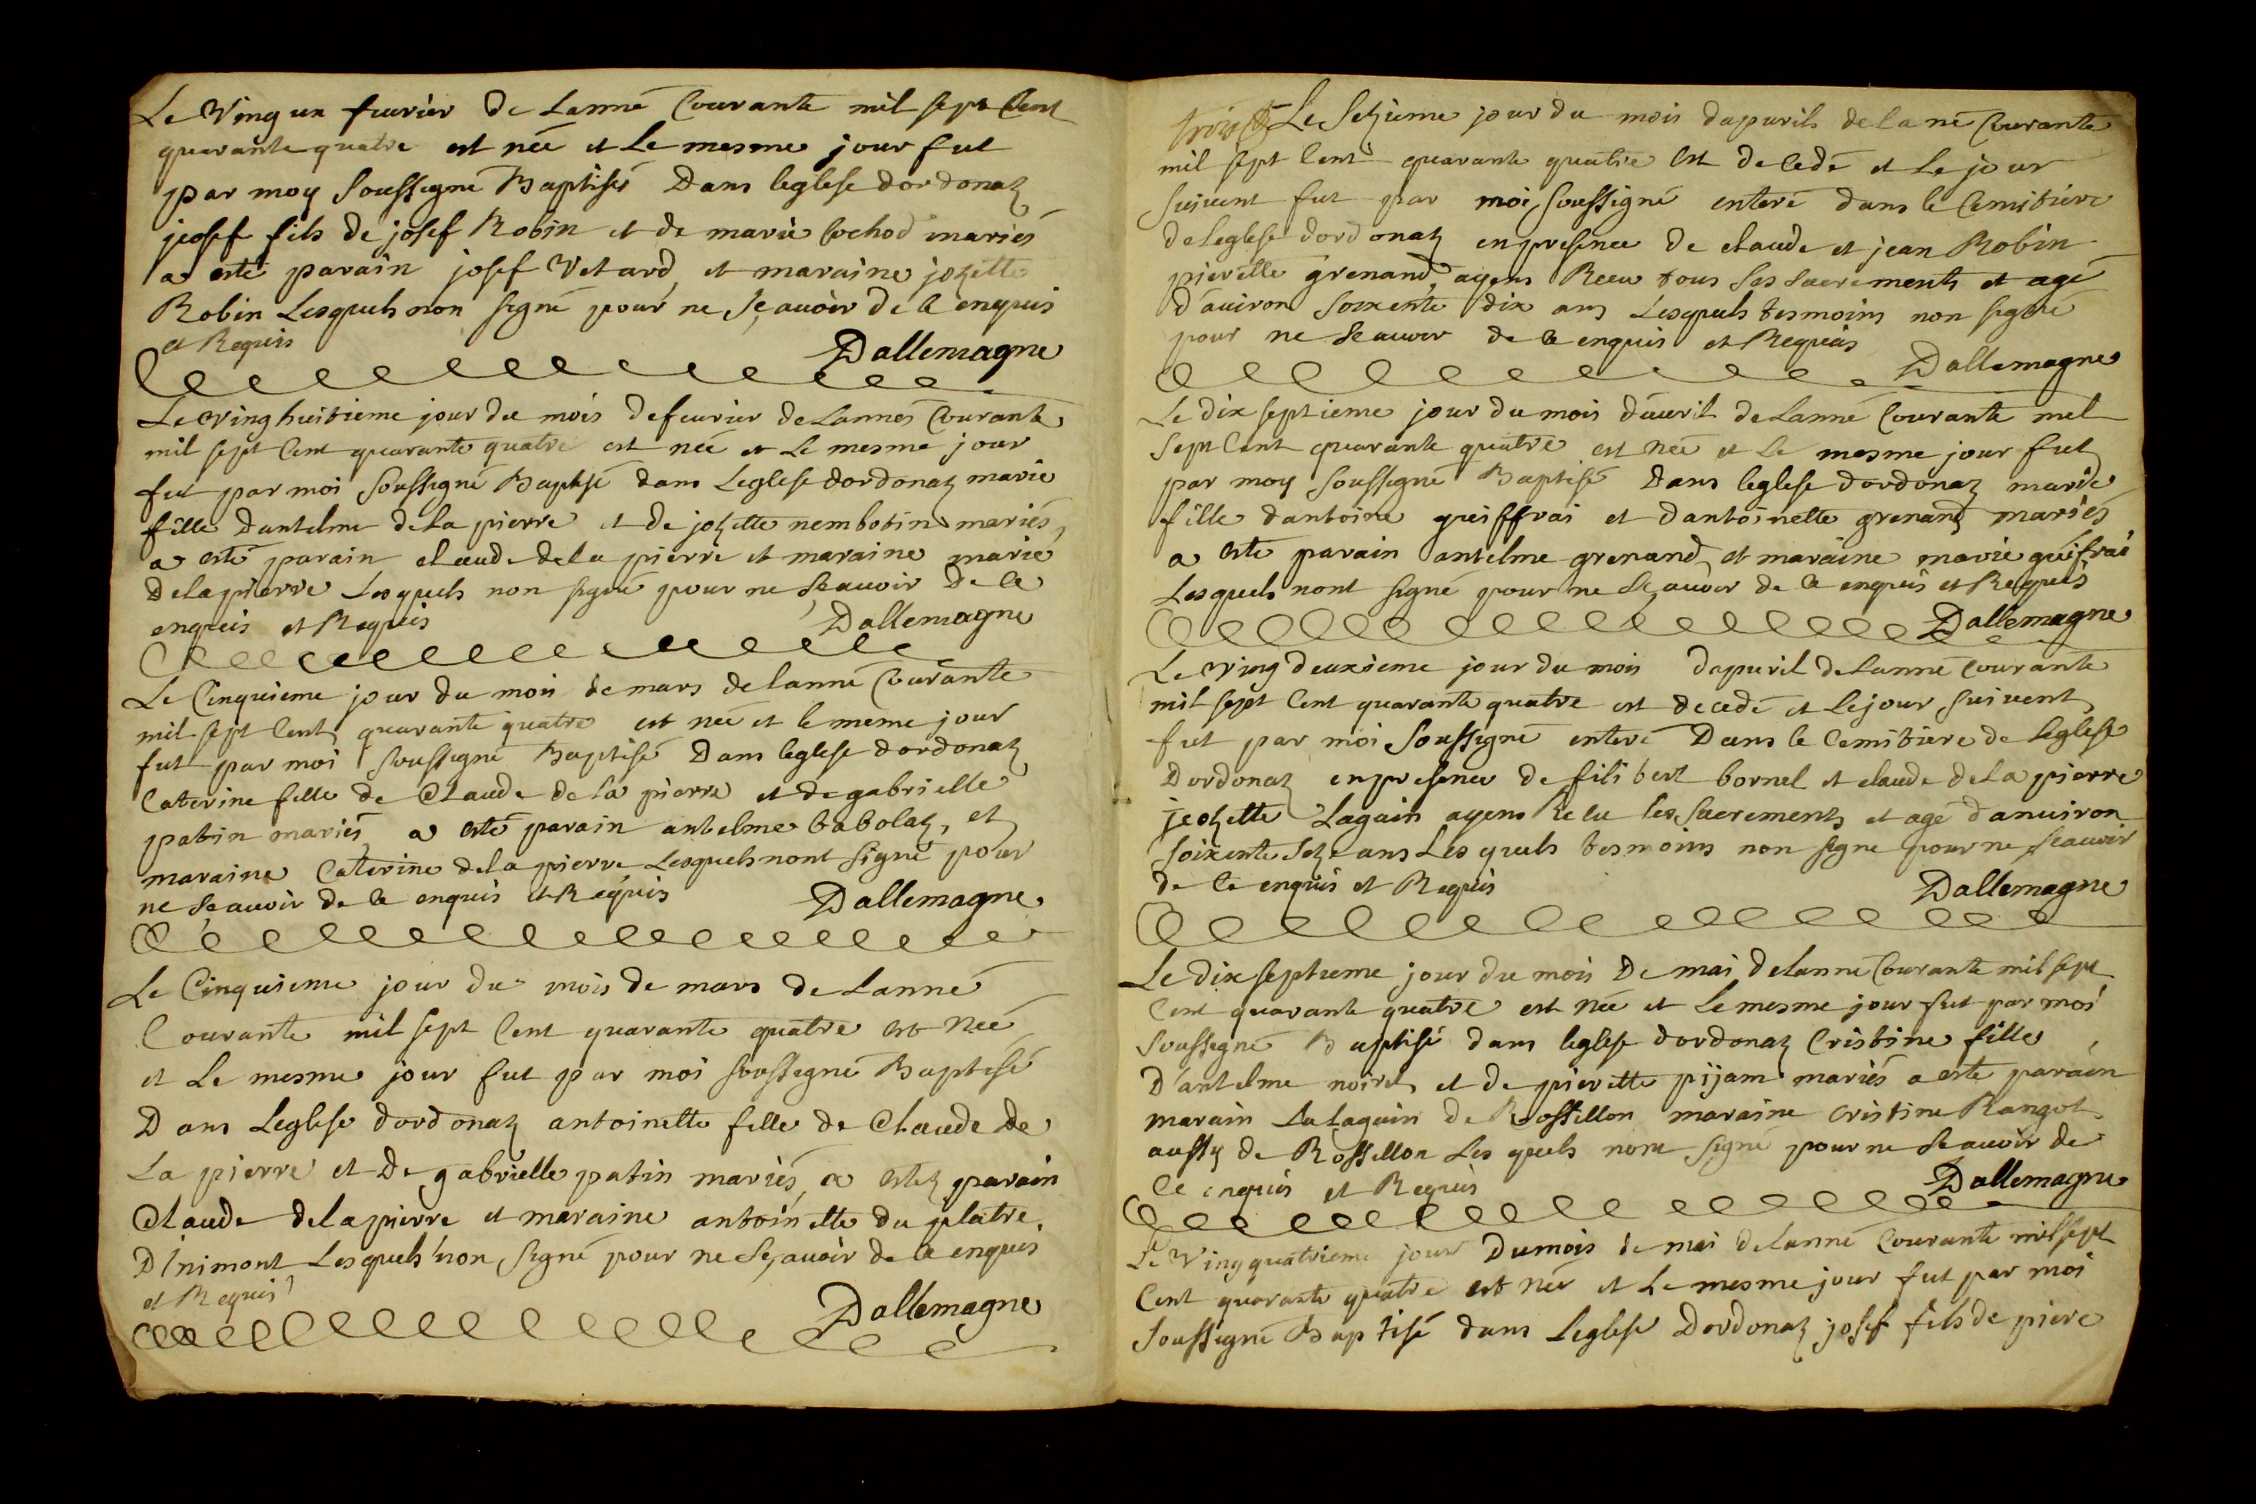 Le Ving un feurier de Lanné Courante mil sept Cent
quarante quatre est néé et Le mesme jour fut
par moy Soussigné Baptisés Dans leglese dordonaz
joseff fils de josef Robin et de marie Cochod mariés
a esté parain josef Vetard et maraine jozette
Robin Lesquels non signé pour ne sçauoir de ce enquis
et Requis
Dallemagne
Le Ving huitieme jour du mois de feurier de Lanneé Courante
mil sept Cent quarante quatre est néé et Le mesme jour
fut par moi Soussigné Baptisé dans Leglese dordonaz marie
fille Dantelme de La pierre et de jozette nembotin mariés
a esté parain claude de la pierre et maraine marie
Delapierre Lesquels non signé pour ne sçauoir de ce
enquis et Requis
Dallemagne
Le Cinquieme jour du mois de mars de lanné Courante
mil sept Cent quarante quatre est néé et le meme jour
fut par moi Soussigné Baptisé Dans leglese dordonaz
Caterine fille de Claude de la pierre et de gabrielle
patin mariés a esté parain antelme babolaz, et
maraine Caterine de la pierre Lesquels nont signé pour
ne sçauoir de ce enquis et Requis
Dallemagne
Le Cinquieme jour du mois de mars de Lanné
Courante mil sept Cent quarante quatre est néé
et Le mesme jour fut par moi soussigné Baptisé
Dans Leglese dordonaz antoinette fille de Claude de
La pierre et de gabrielle patin mariés, a estez parain
Claude de la pierre et maraine antoinette du platre,
D'inimont Lesquels non signé pour ne sçauoir de ce enquis
et Requis
Dallemagne
Le Sezieme jour du mois dapuril de la né Courante
mil sept Cent quarante quatre est decedé et Le jour
suiuent fut par moi soussigné enteré dans le Cemitiere
de leglese dordonaz en presence de claude et jean Robin
pierette grenand, ayens Receu tous ses sacrements et agé
d'auiron soixente dix ans Lesquels tesmoins non signé
pour ne sçauoir de ce enquis et Requis
Dallemagne
Le dix septieme jour du mois d'auril de Lanné Courante mil
sept Cent quarante quatre est néé et Le mesme jour fut
par moy soussigné Baptisé Dans leglese dordonaz marie
fille dantoine guiffrai et dantoinette grenand mariés
a esté parain antelme grenand et maraine marie guifrai
Lesquels nont signé pour ne sçauoir de ce enquis et Requis
Dallemagne
Le Ving deuxieme jour du mois dapuril de Lanné Courante
mil sept Cent quarante quatre est decedé et Le jour suiuent
fut par moi Soussigné enteré Dans le Cemitiere de leglese
Dordonaz en presence de filibert bornel et claude de La pierre
jeozette Lagain ayens Receu les sacrements et agé danuiron
soixente seze ans Lesquels tesmoins non signé pour ne sçauoir
de ce enquis et Requis
Dallemagne
Le dix septieme jour du mois De mai de Lanné Courante mil sept
Cent quarante quatre est néé et Le mesme jour fut par moi
soussigné Baptisé dans leglese dordonaz Cristine fille
D'antelme noiret et de pierette pijam mariés a esté parain
marain La Laguin de Rossillon maraine cristine Rangot
aussy de Rossillon Les quels nont signé pour ne sçauoir de
Ce enquis et Requis
Dallemagne
Le Ving quatrieme jour Du mois de mai de Lanné Courante mil sept
Cent quarante quatre est néé et Le mesme jour fut par moi
Soussigné Baptisé dans Leglese Dordonaz josef fils de piere